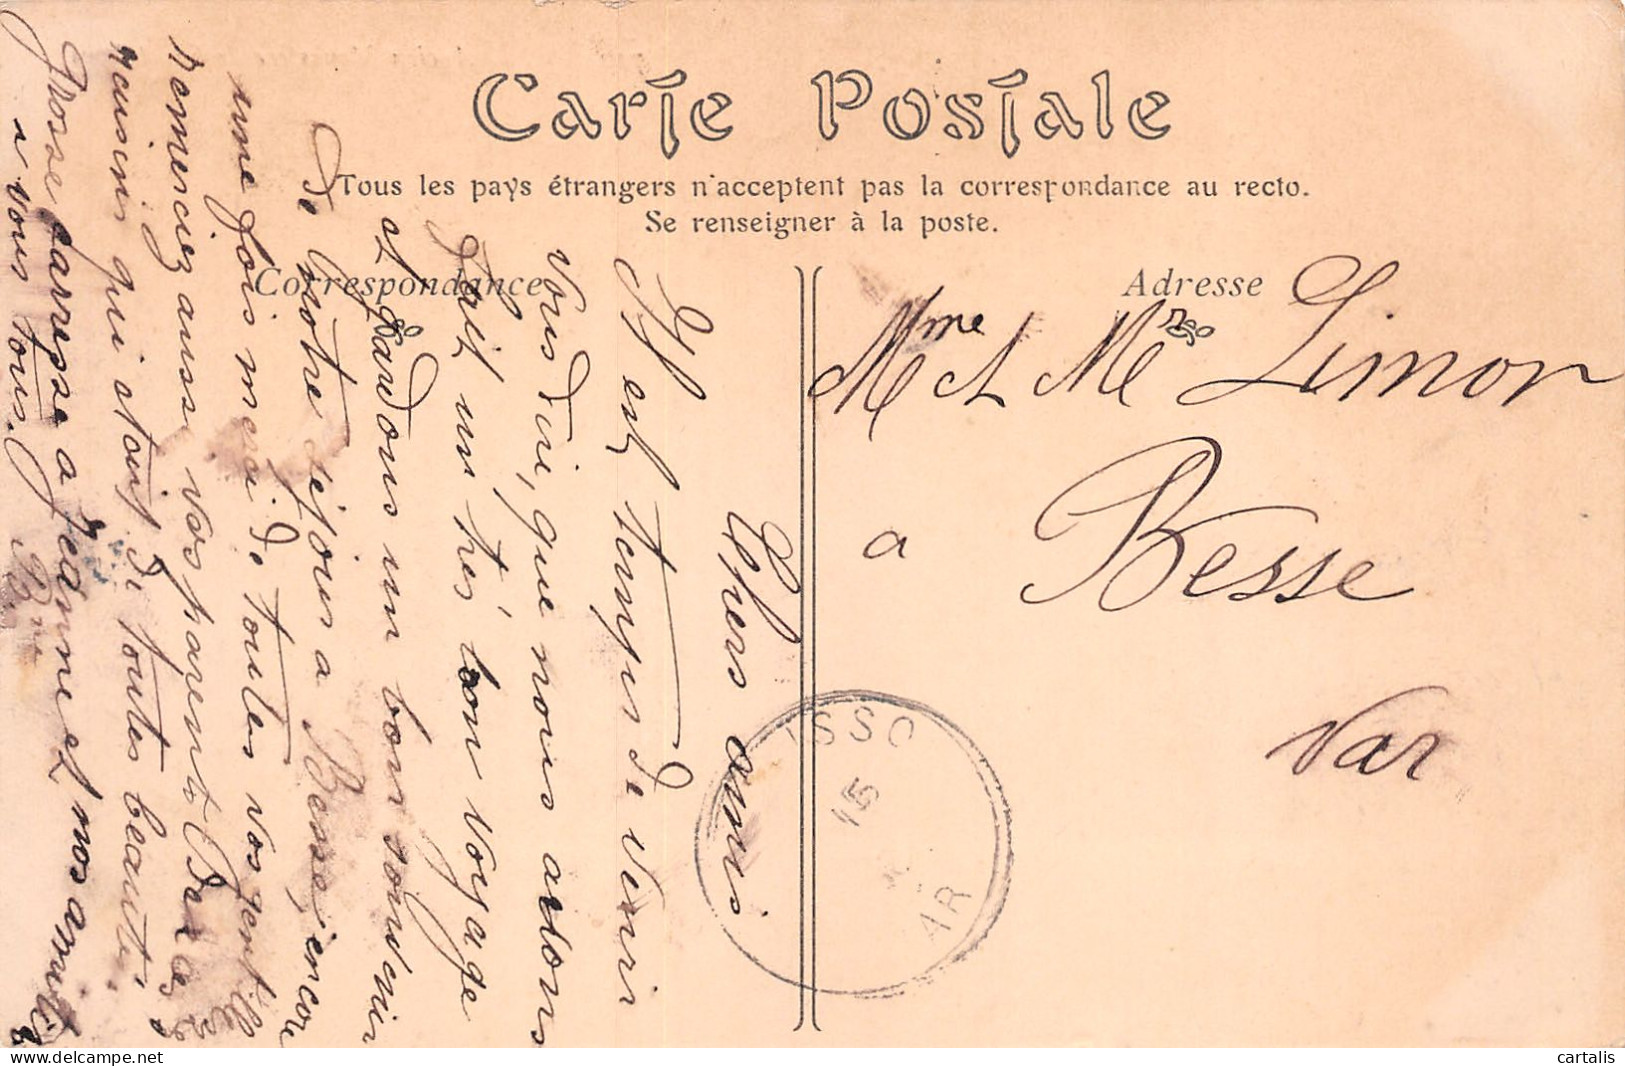 Carte Postale
Tous les pays étrangers n'acceptent pas la correspondance au recto.
Se renseigner à la poste.
Correspondance
Adresse
Mme et Mr Limon
a Besse
Var
Chers amis
Il est temps de venir
vous dire, que nous avons
fait un très bon voyage
et gardons un bon souvenir
de notre séjour a Besse, encore
une fois merci de toutes vos gentill
remerciez aussi vos parents
raisins qui étaint de toutes beauté,
Grosse carresse a Jeanne et nos amitiés
a vous tous.
ISSO
15
AR
cartalis